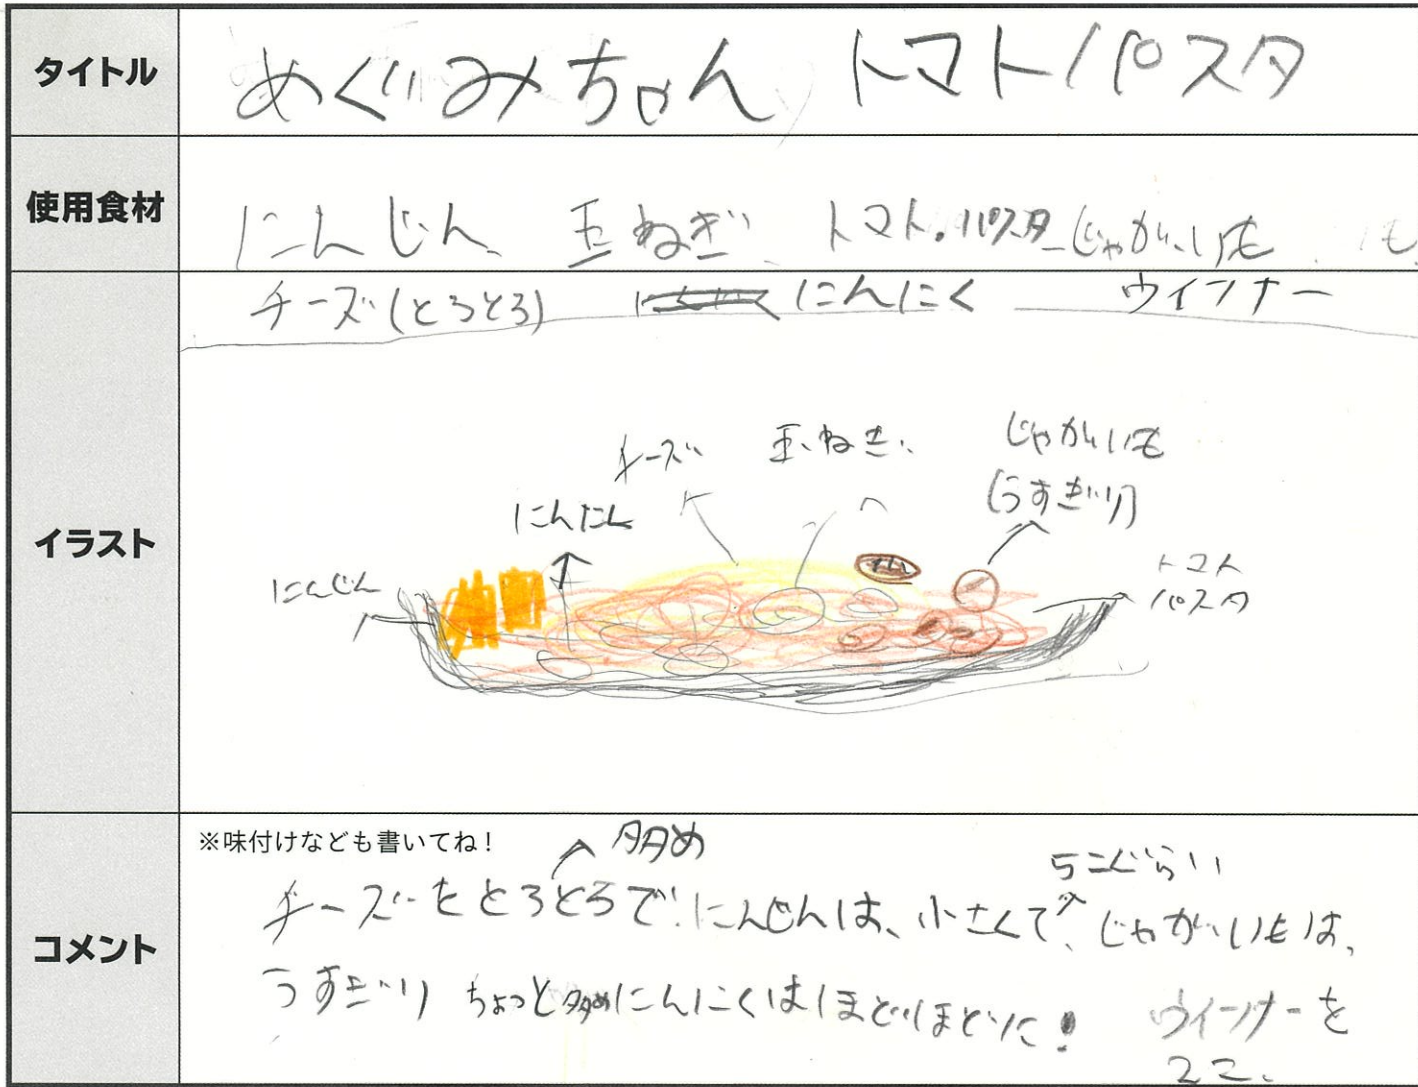 タイトル
めぐみちゃん トマトパスタ
使用食材
にんじん、玉ねぎ、トマト。パスタ じゃがいも
も
チーズ(とろとろ) にんにく ウインナー
イラスト
チーズ 玉ねぎ じゃがいも
(うすぎり)
にんにく
にんじん
トマト
パスタ
コメント
※味付けなども書いてね!
多め
5こぐらい
チーズをとろとろで、にんじんは、小さくて、じゃがいもは、
うすぎり ちょっと多めにんにくはほどほどに! ウインナーを
2こ。